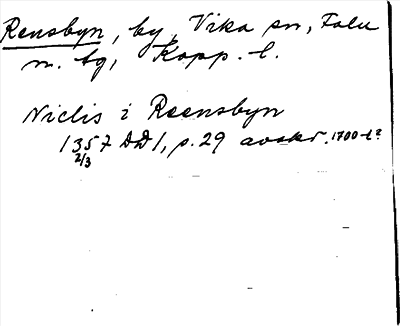 Rensbyn, by, Vika sn, Falu
m. tg, Kopp. l.
Niclis i Reensbyn
1357 DD 1, p. 29 avskr. 1700-t?
2/3